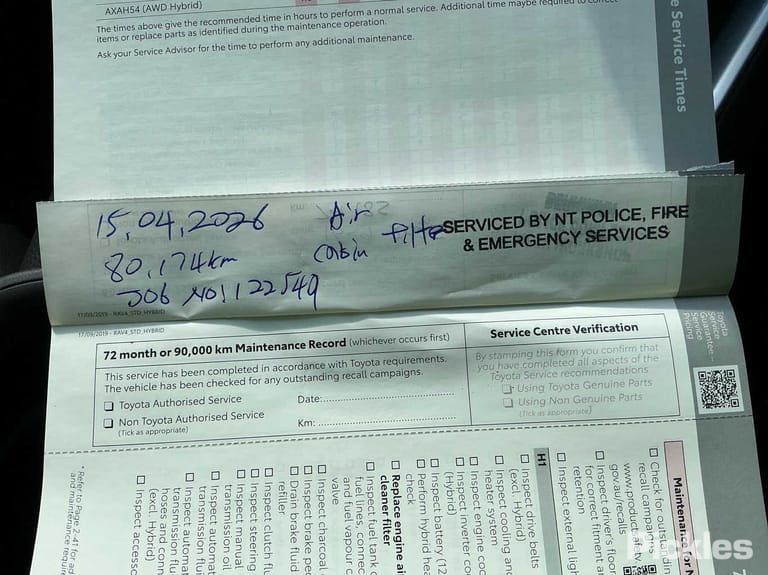 AXAH54 (AWD Hybrid)
The times above give the recommended time in hours to perform a normal service. Additional time maybe required to correct
items or replace parts as identified during the maintenance operation.
Ask your Service Advisor for the time to perform any additional maintenance.
e Service Times
15,04,2026
80,174km
JOB NO1122549
Air
Cabin filter
SERVICED BY NT POLICE, FIRE
& EMERGENCY SERVICES
17/09/2019 - RAV4_STD_HYBRID
17/09/2019 - RAV4_STD_HYBRID
72 month or 90,000 km Maintenance Record (whichever occurs first)
This service has been completed in accordance with Toyota requirements.
The vehicle has been checked for any outstanding recall campaigns.
Toyota Authorised Service
Non Toyota Authorised Service
(Tick as appropriate)
Date:
Km:
Service Centre Verification
By stamping this form you confirm that
you have completed all aspects of the
Toyota Service recommendations
Using Toyota Genuine Parts
Using Non Genuine Parts
(Tick as appropriate)
Toyota
Service
Guarantee
Service
Pricing
Maintenance
Check for outstandin
recall campai
www.product
gov.au/recalls
Inspect driver's floor
for correct fitment a
retention
Inspect external ligh
H1
Inspect drive belts
(excl. Hybrid)
Inspect cooling and
heater system
Inspect engine coo
Inspect inverter co
(Hybrid)
Inspect battery (12
Perform hybrid hea
check
Replace engine ai
cleaner filter
Inspect fuel tank c
fuel lines, connec
and fuel vapour c
valve
Inspect charcoal c
Inspect brake pe
Drain brake fluid
refiller
Inspect clutch flu
Inspect steering
Inspect manual
transmission oil
Inspect automat
transmission flui
Inspect automat
transmission flui
hoses and conn
(excl. Hybrid)
Inspect accesso
* Refer to Page 2-41 for ad
and maintenance requir
Pickles